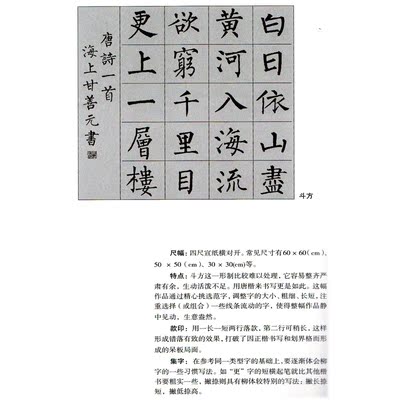 白日依山盡
黄河入海流
欲窮千里目
更上一層樓
唐詩一首
海上甘善元書
斗方
尺幅：四尺宣纸横对开。常见尺寸有60×60(cm)、
50×50(cm)、30×30(cm)等。
特点：斗方这一形制比较难以处理，它容易整齐严
肃有余，生动活泼不足，用唐楷来书写更是如此。这幅
作品通过精心挑选范字，调整字的大小、粗细、长短，注
重选择（或组合）一些线条流动的字，使得整幅作品静
中见动，生意盎然。
款印：用一长一短两行落款，第二行可稍长，这样
形成错落有致的效果，打破了因正楷书写和划界格而形
成的呆板局面。
集字：在参考同一类型字的基础上，要逐渐体会柳
字的一些习惯写法，如“更”字的短横起笔就比其他楷
书要粗实一些，撇捺则具有柳体较特别的写法：撇长捺
短，撇低捺高。